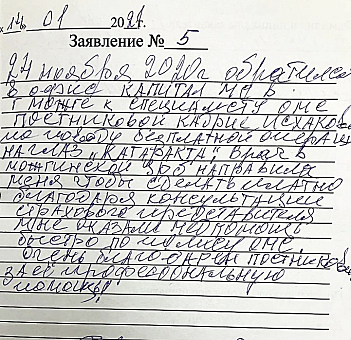 14. 01 2021г.
Заявление № 5
24 ноября 2020г обратился
в офис КАПИТАЛ МС в
г можге к специалисту ОМС
ПОСТНИКОВОЙ КАДРИЕ ИСХАКОВ
по поводу бесплатной операции
на глаз „КАТАРАКТА" врач в
можгинской ЦРБ направила
меня чтобы сделать платно
благодаря консультации
страхового представителя
мне оказали медпомощь
быстро по полису ОМС
очень благодарен Постниковой
за её профессиональную
помощь!